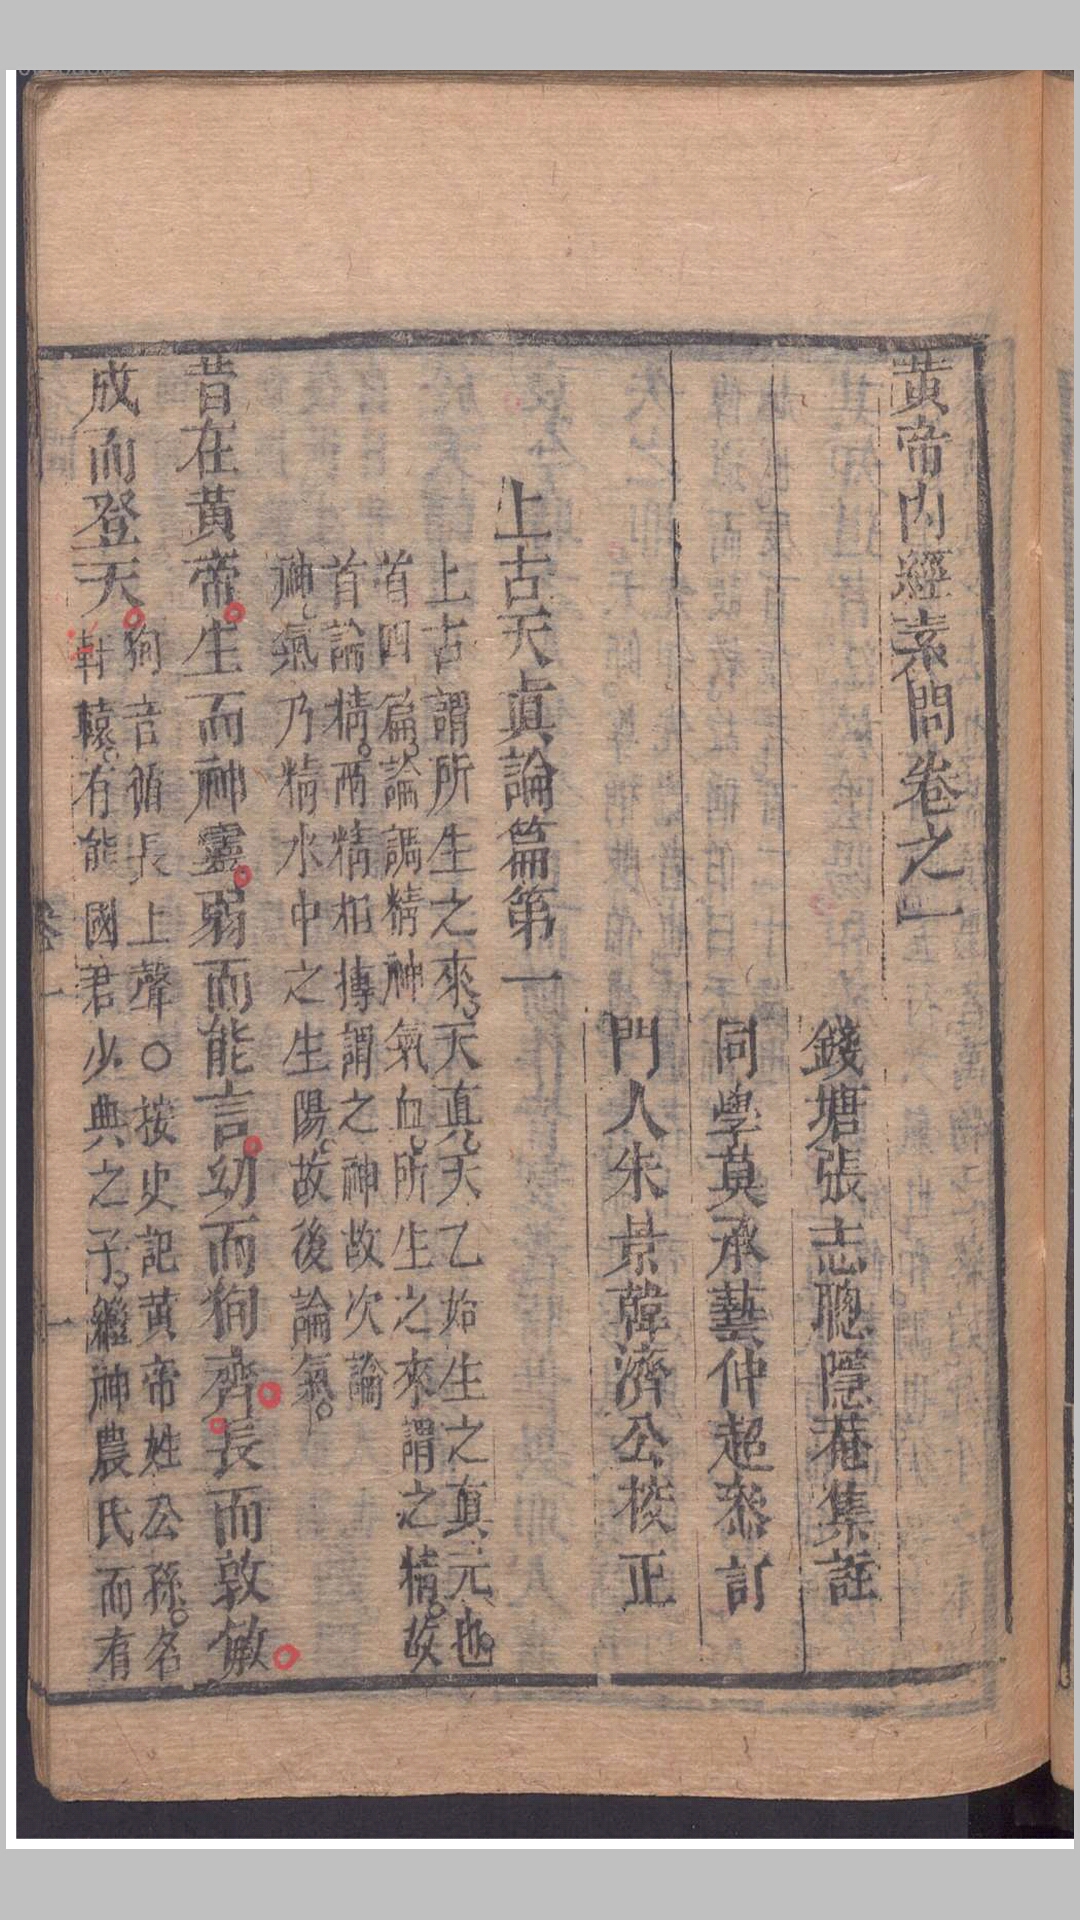 黃帝內經素問卷之一
錢塘張志聰隱菴集註
同學莫承藝仲超叅訂
門人朱景韓濟公校正
上古天眞論篇第一
上古謂所生之來天眞天乙始生之眞元也
首四篇論調精神氣血所生之來謂之精故
首論精兩精相搏謂之神故次論
神氣乃精水中之生陽故後論氣
昔在黃帝生而神靈弱而能言幼而狥齊長而敦敏
成而登天
狥音循長上聲○按史記黃帝姓公孫名
軒轅有能國君少典之子繼神農氏而有
卷一
一